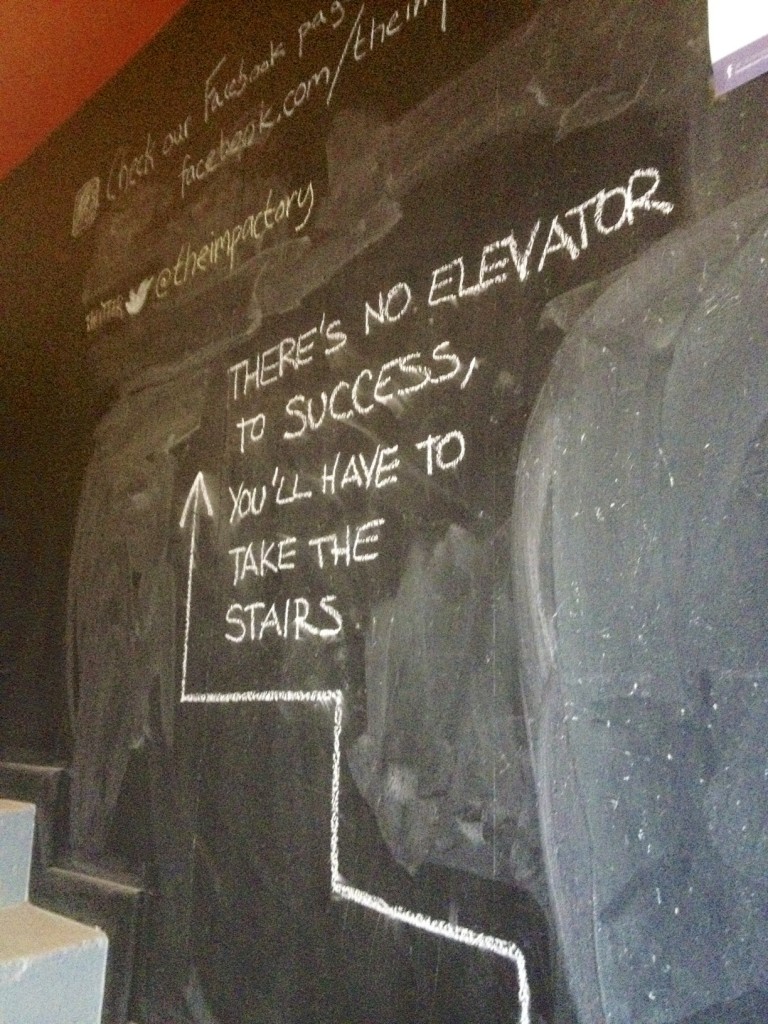 Check our Facebook pag
facebook.com/theim
@theimpactory
THERE'S NO ELEVATOR
TO SUCCESS,
YOU'LL HAVE TO
TAKE THE
STAIRS